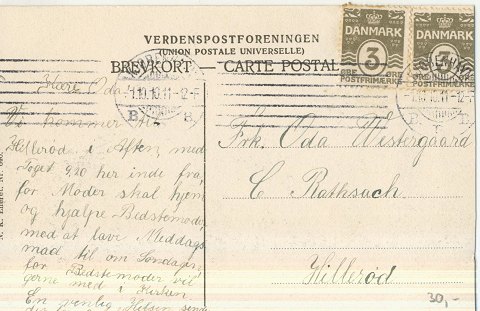 VERDENSPOSTFORENINGEN
(UNION POSTALE UNIVERSELLE)
BREVKORT — CARTE POSTALE
DANMARK
3
ØRE
POSTFRIMÆRKE
ØRE
DANMARK
3
ØRE
POSTFRIMÆRKE
1.10.10.11-12-F
B. B.
1.10.10.11-12-F
B B
Kære Oda
Vi kommer til
Hillerød i Aften, med
Toget 9,20 her inde fra,
for Moder skal hjem
og hjælpe Bedstemoder
med at lave Middags
mad til om Søndagen
for Bedstemoder vil
gerne med i Kirken
En venlig Hilsen
Frk. Oda Vistergaard
C. Rathsach
Hillerød
30,-
N. K. Eneret. Nr.